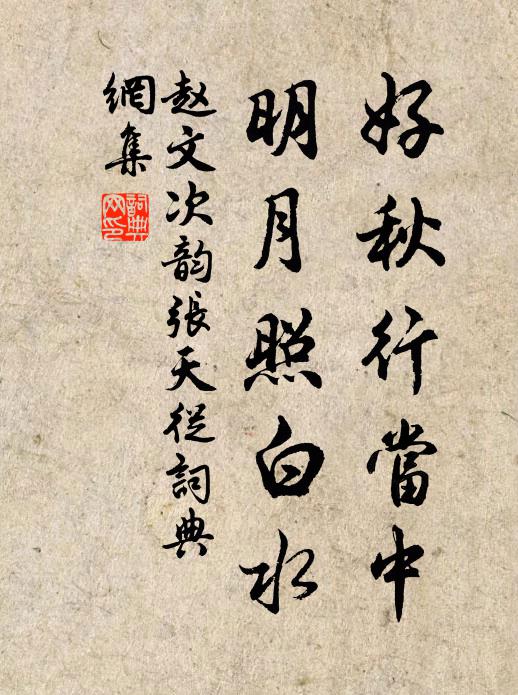 好秋行當中
明月照白水
赵文次韵張天從詞典
網集
詞典
网印